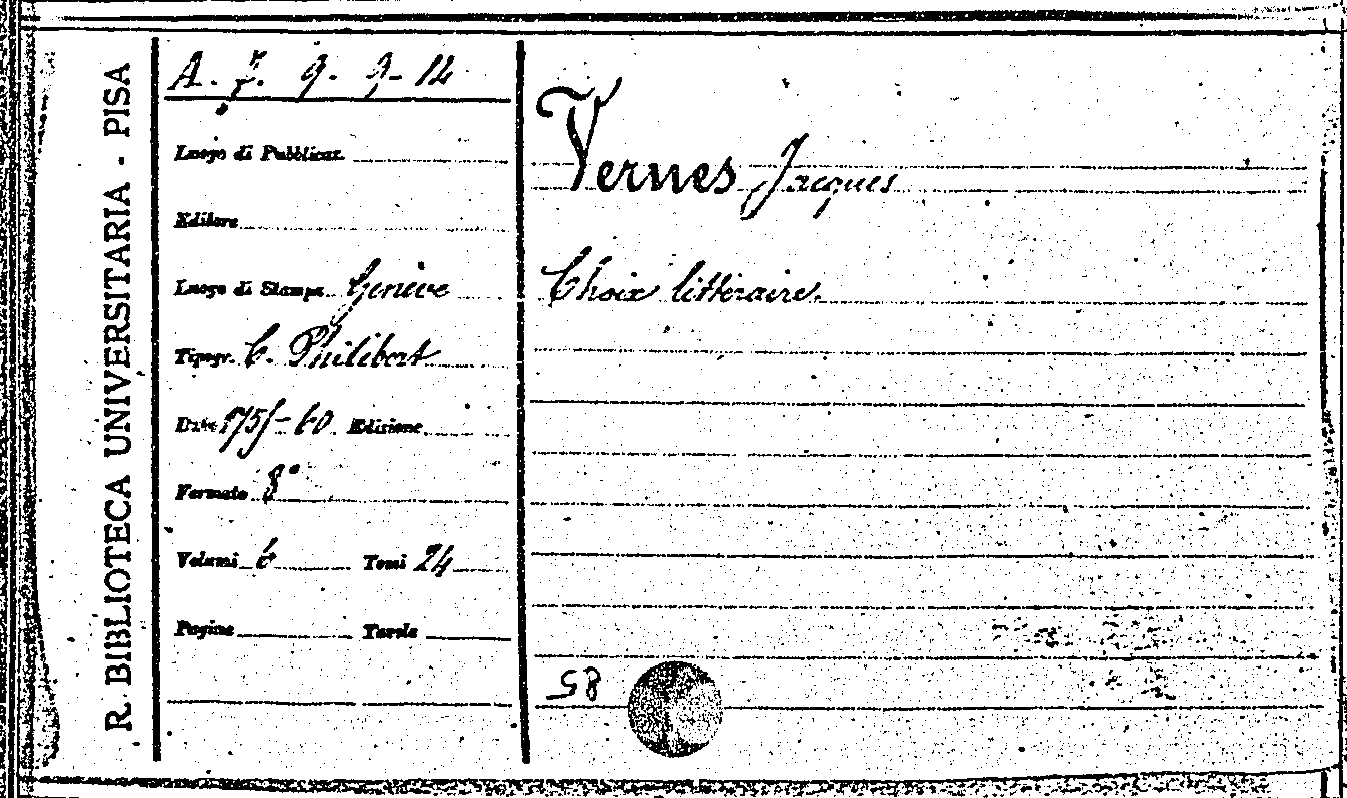 R. BIBLIOTECA UNIVERSITARIA - PISA
A. 7. 9. 9-14
Luogo di Pubblicaz.
Editore
Luogo di Stampa Genève
Tipogr. C. Philibert
Data 175 -60 Edizione
Formato 8°
Volumi 6 Tomi 24
Pagine Tavole
Vernes Jacques
Choix littéraire.
58